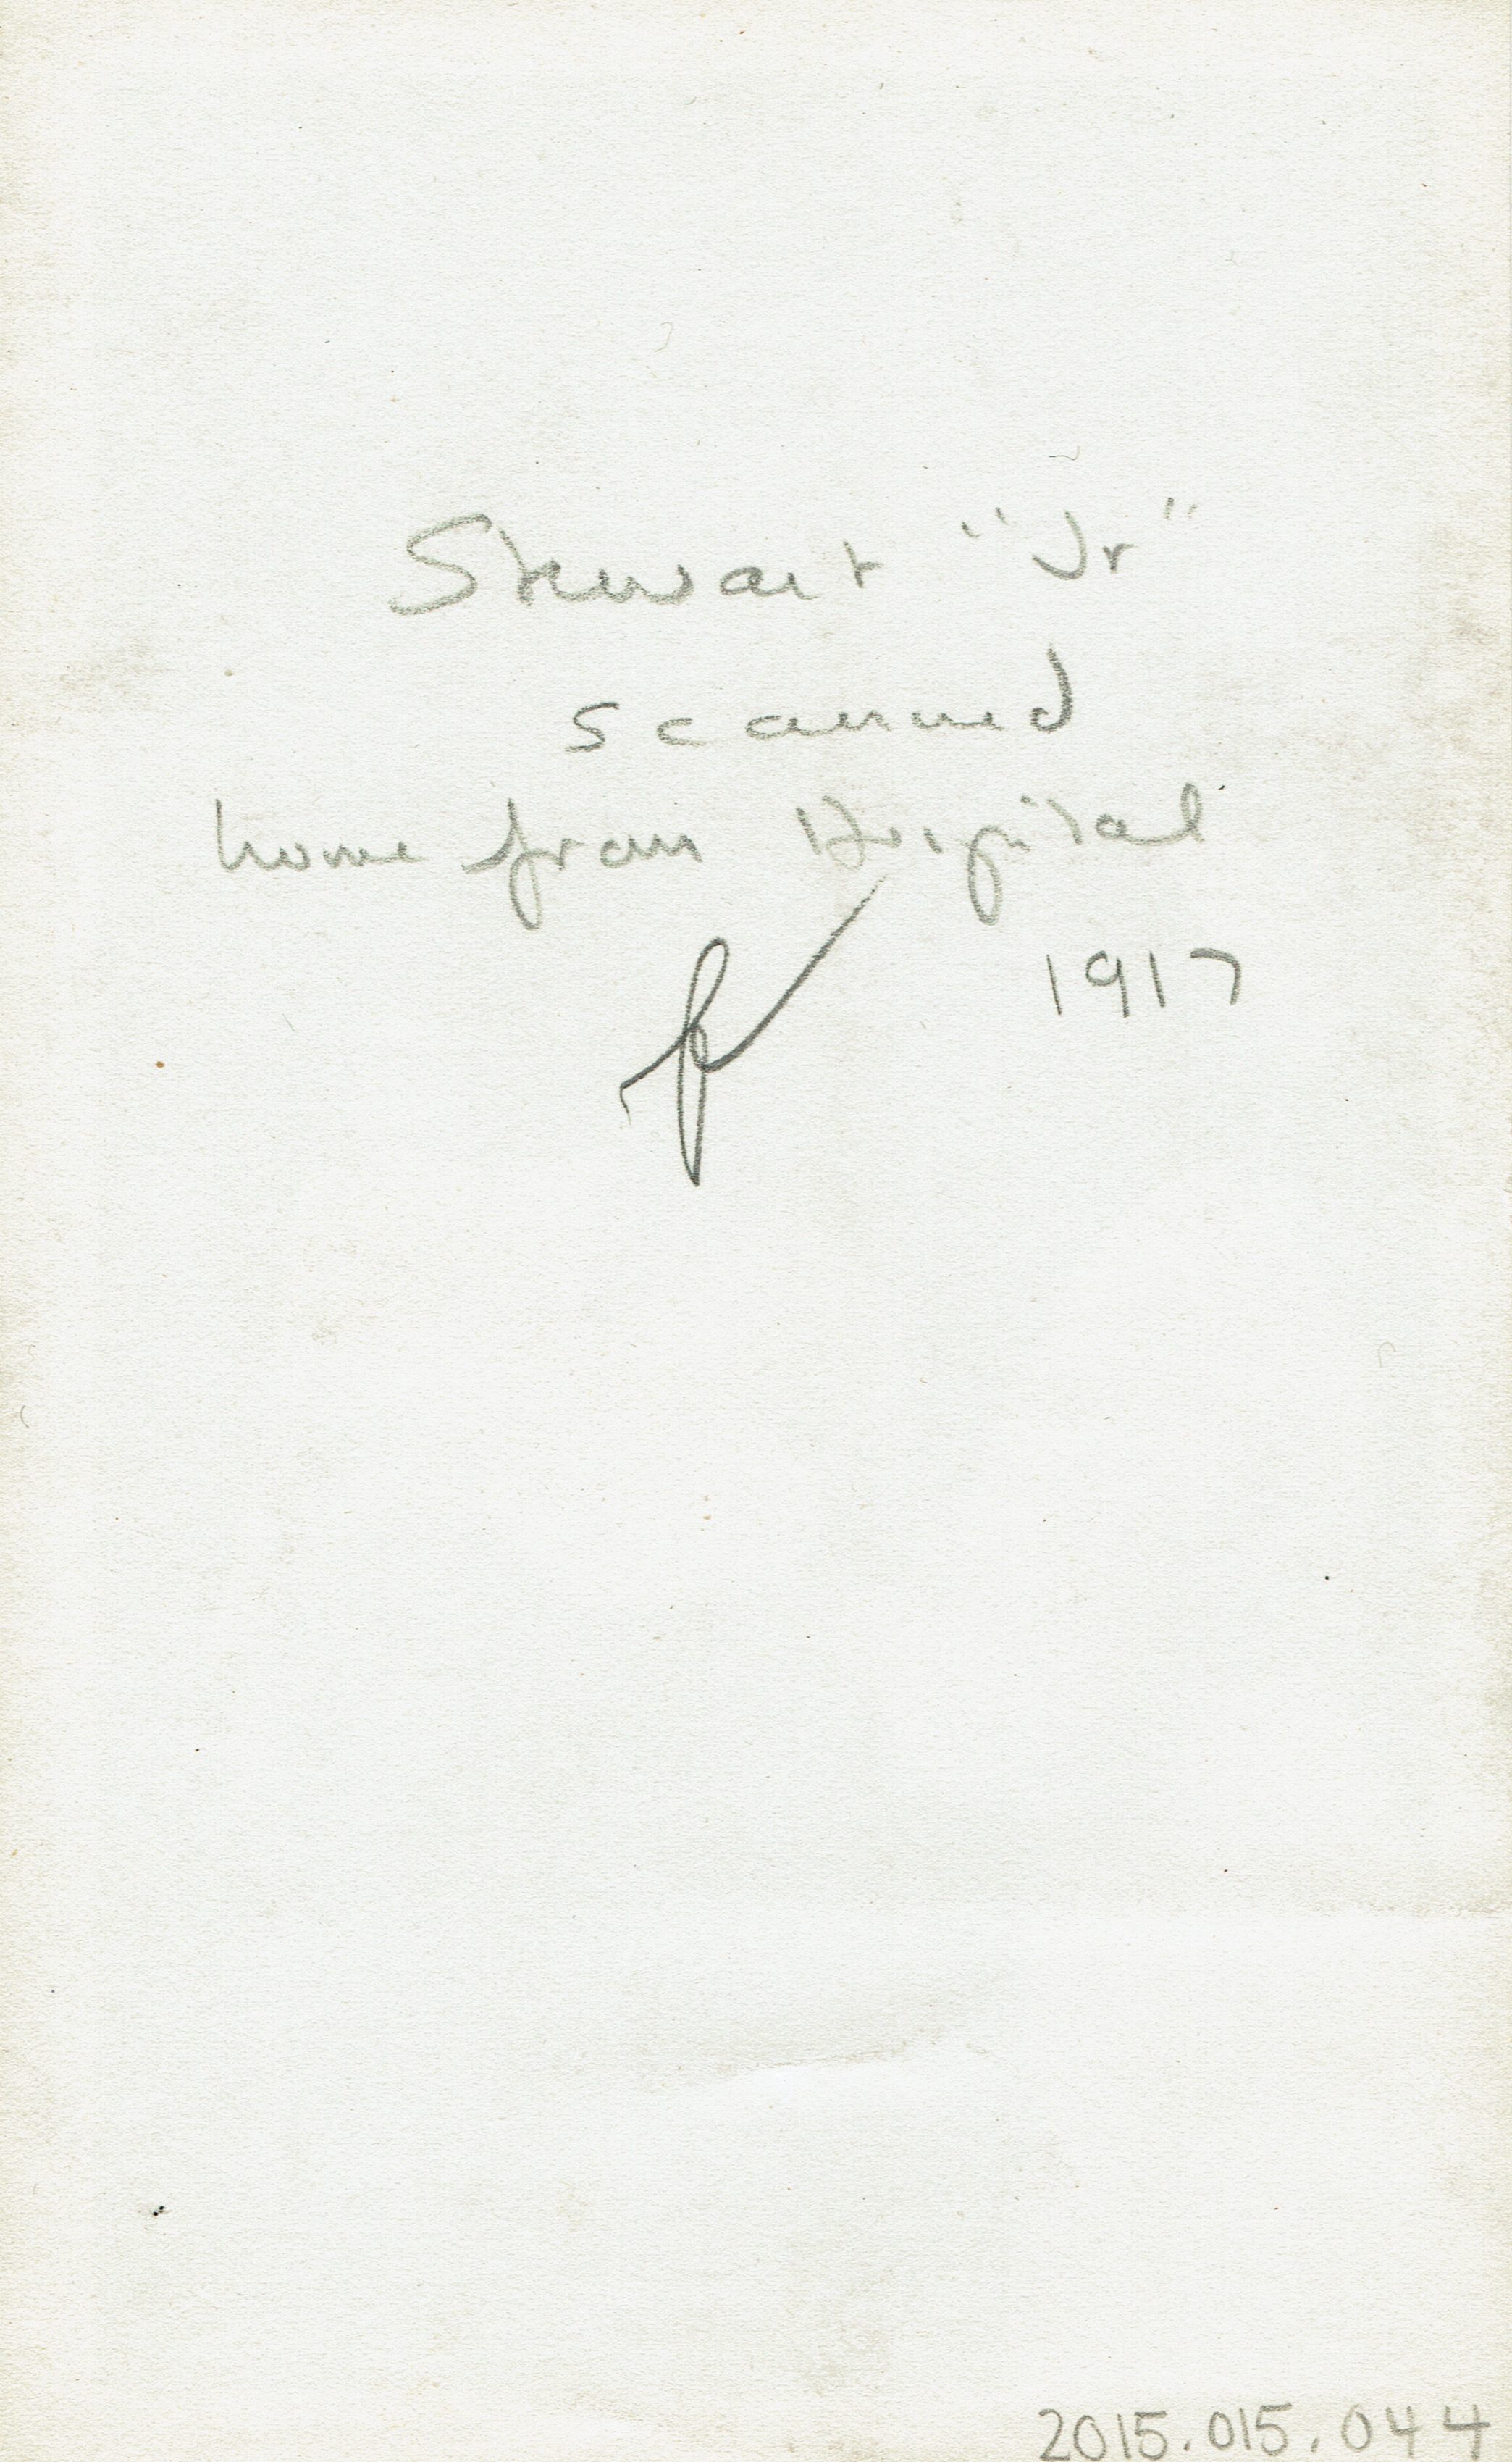 Stewart "Jr"
scanned
home from Hospital
1917
2015.015.044